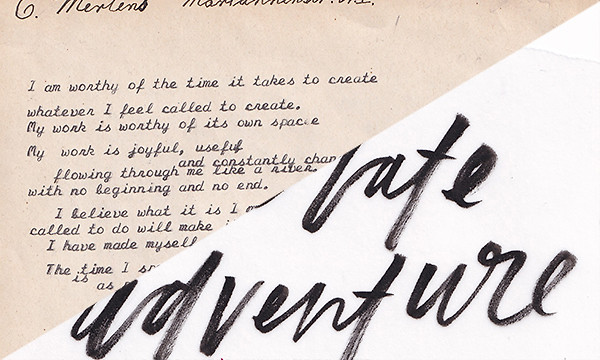 G. Mertens
I am worthy of the time it takes to create
whatever I feel called to create.
My work is worthy of its own space
My work is joyful, useful
and constantly chan
flowing through me like a river.
with no beginning and no end.
I believe what it is I a
called to do will make i
I have made mysel
The time I sp
is as
ate
adventure